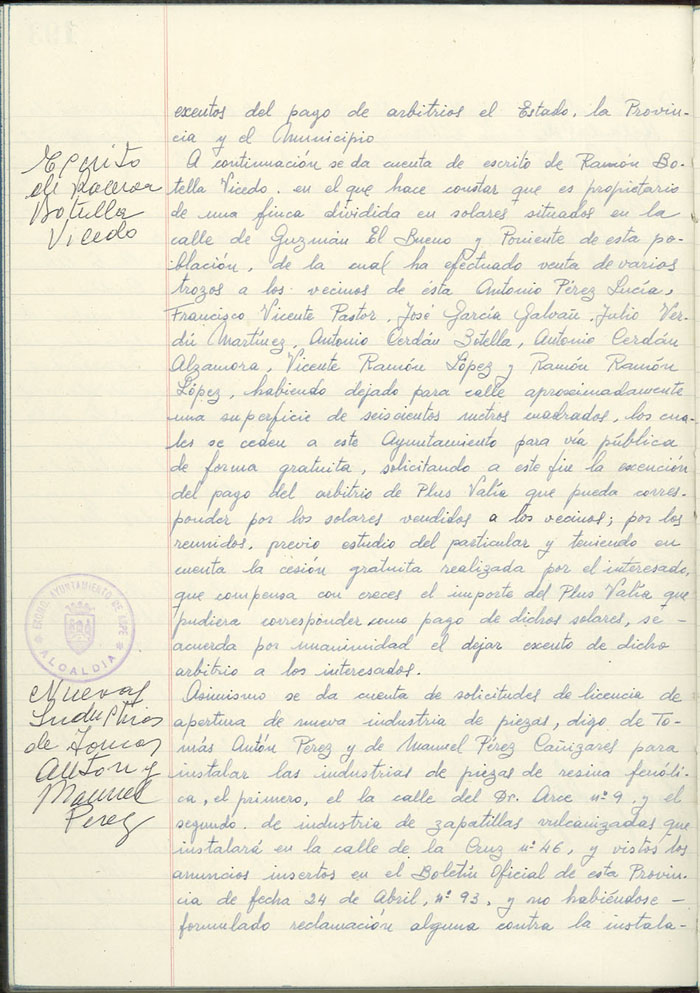 exentos del pago de arbitrios el Estado, la Provin-
cia y el Municipio
Escrito
de Ramon
Botella
Vicedo
A continuación se da cuenta de escrito de Ramón Bo-
tella Vicedo. en el que hace constar que es propietario
de una finca dividida en solares situados en la
calle de Guzmán El Bueno y Poniente de esta po-
blación, de la cual ha efectuado venta de varios
trozos a los vecinos de ésta Antonio Pérez Lucía,
Francisco Vicente Pastor, José García Galvañ, Julio Ver-
dú Martínez, Antonio Cerdán Botella, Antonio Cerdán
Alzamora, Vicente Ramón López y Ramón Ramón
López, habiendo dejado para calle aproximadamente
una superficie de seiscientos metros cuadrados, los cua-
les se ceden a este Ayuntamiento para vía pública
de forma gratuita, solicitando a este fin la exención
del pago del arbitrio de Plus Valía que pueda corres-
ponder por los solares vendidos a los vecinos; por los
reunidos, previo estudio del particular y teniendo en
cuenta la cesión gratuita realizada por el interesado,
que compensa con creces el importe del Plus Valía que
pudiera corresponder como pago de dichos solares, se -
acuerda por unanimidad el dejar exento de dicho
arbitrio a los interesados.
EXCMO. AYUNTAMIENTO DE ASPE
ALCALDIA
Nuevas
Industrias
de Tomas
Anton y
Manuel
Perez
Asimismo se da cuenta de solicitudes de licencia de
apertura de nueva industria de piezas, digo de To-
más Antón Pérez y de Manuel Pérez Cañizares para
instalar las industrias de piezas de resina fenóli-
ca, el primero, el la calle del Dr. Arce nº 9. y el
segundo. de industria de zapatillas vulcanizadas que
instalará en la calle de la Cruz nº 46, y vistos los
anuncios insertos en el Boletín Oficial de esta Provin-
cia de fecha 24 de Abril, nº 93, y no habiéndose -
formulado reclamación alguna contra la instala-